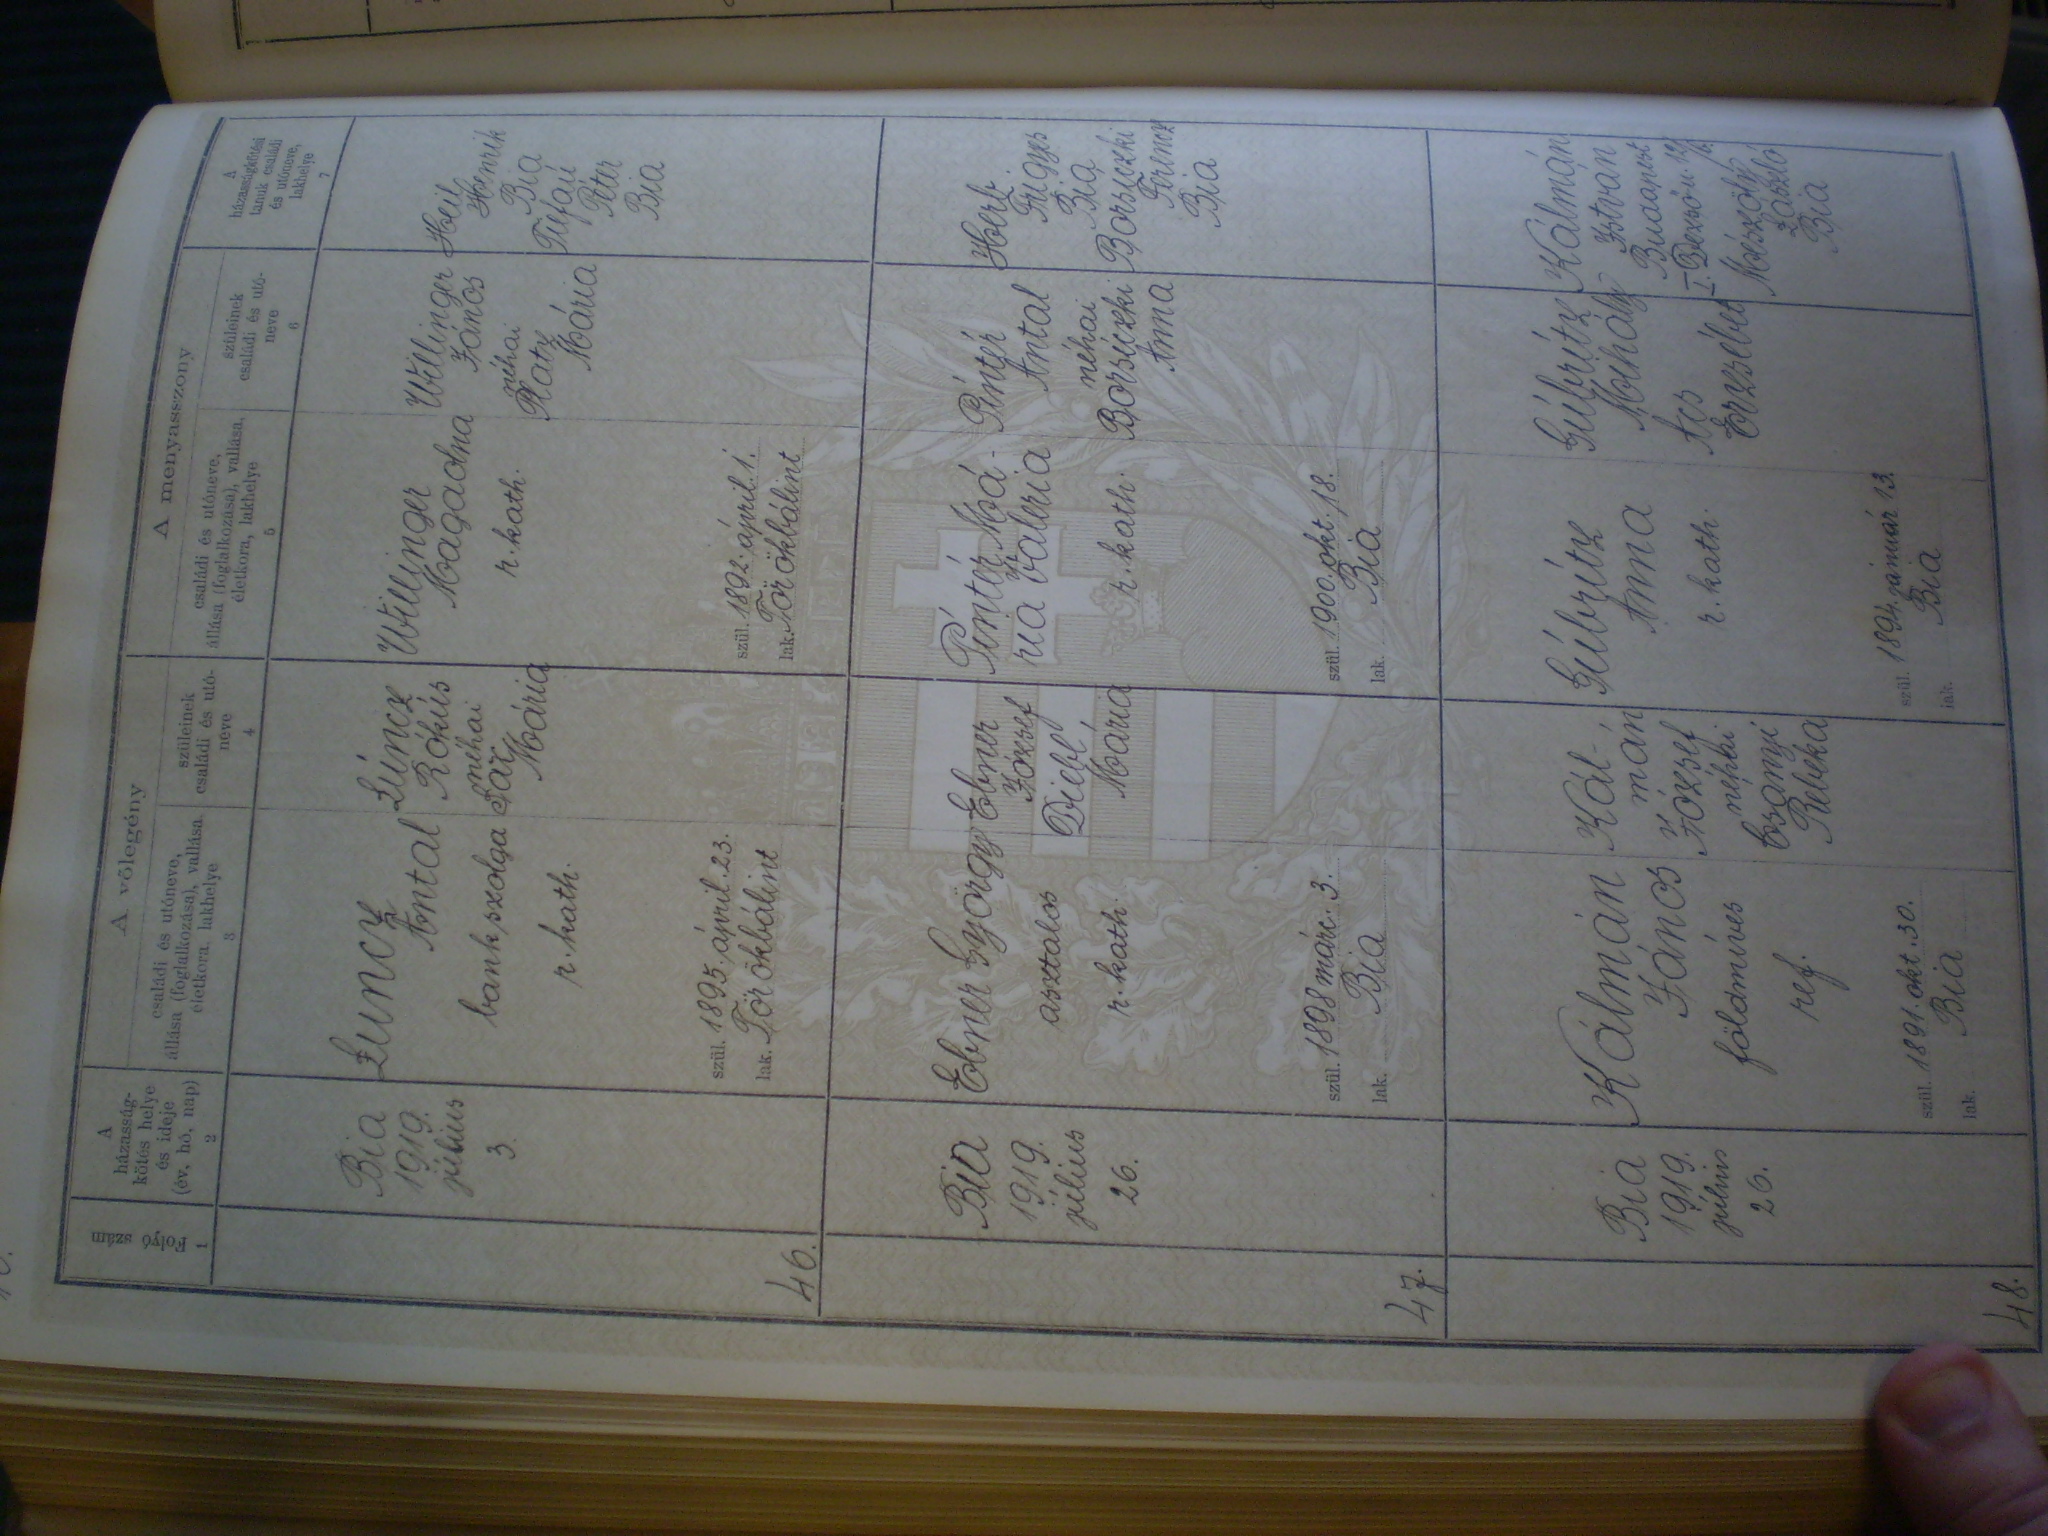 A vőlegény
A menyasszony
Folyó szám
1
A
házasság-
kötés helye
és ideje
(év, hó, nap)
2
családi és utóneve,
állása (foglalkozása), vallása,
életkora, lakhelye
3
szüleinek
családi és utó-
neve
4
családi és utóneve,
állása (foglalkozása), vallása,
életkora, lakhelye
5
szüleinek
családi és utó-
neve
6
A
házasságkötési
tanuk családi
és utóneve,
lakhelye
7
46.
Bia
1919.
július
3.
Luncz
Antal
bankszolga
r. kath.
szül. 1895. április. 23.
lak. Törökbálint
Luncz
Rókus
néhai
Mária
Willinger
Magdolna
r. kath.
szül. 1892. április. 1.
lak. Törökbálint
Willinger
János
néhai
Platz
Mária
Heil
Henrik
Bia
Péter
Bia
47.
Bia
1919.
július
26.
Ebner György
asztalos
r. kath.
szül. 1898 márc. 3.
lak. Bia
Ebner
József
Diebl
Mária
Pintér Má-
ria Valéria
r. kath.
szül. 1900. okt. 18.
lak. Bia
Pintér
Antal
néhai
Borsiczki
Anna
Frigyes
Bia
Borsiczki
Ferencz
Bia
48.
Bia
1919.
július
26.
Kálmán
János
földmíves
ref.
szül. 1891. okt. 30.
lak. Bia
Kál-
mán
József
néhai
Rebeka
Anna
r. kath.
szül. 1894. január 13.
lak. Bia
Mihály
Ács
Erzsébet
Kálmán
István
Budapest
Mészöly
László
Bia